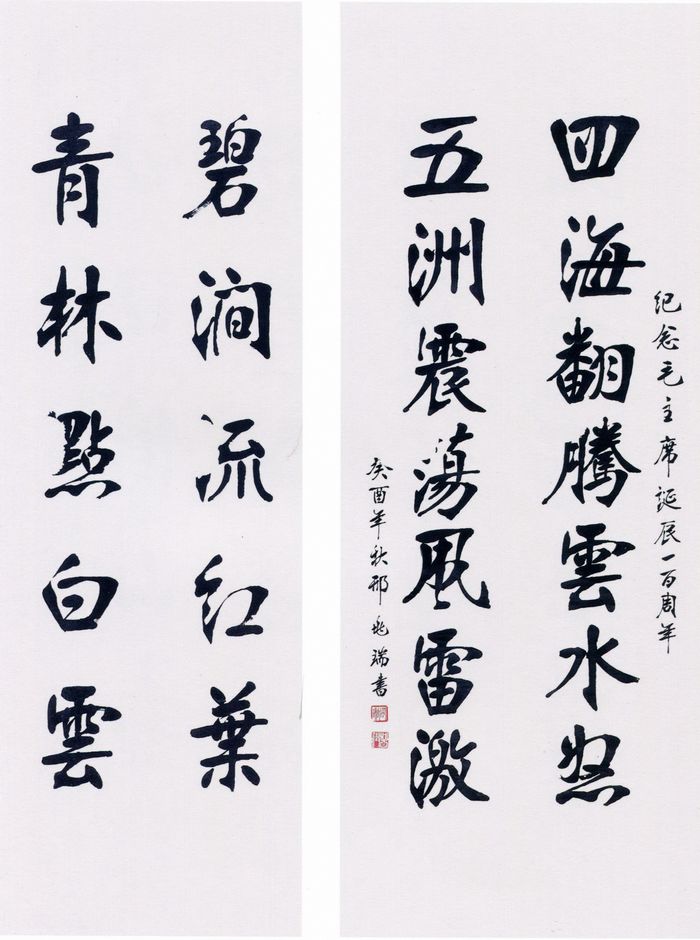 纪念毛主席诞辰一百周年
四海翻騰雲水怒
五洲震蕩風雷激
癸酉年秋邢兆瑞書
碧澗流红葉
青林點白雲